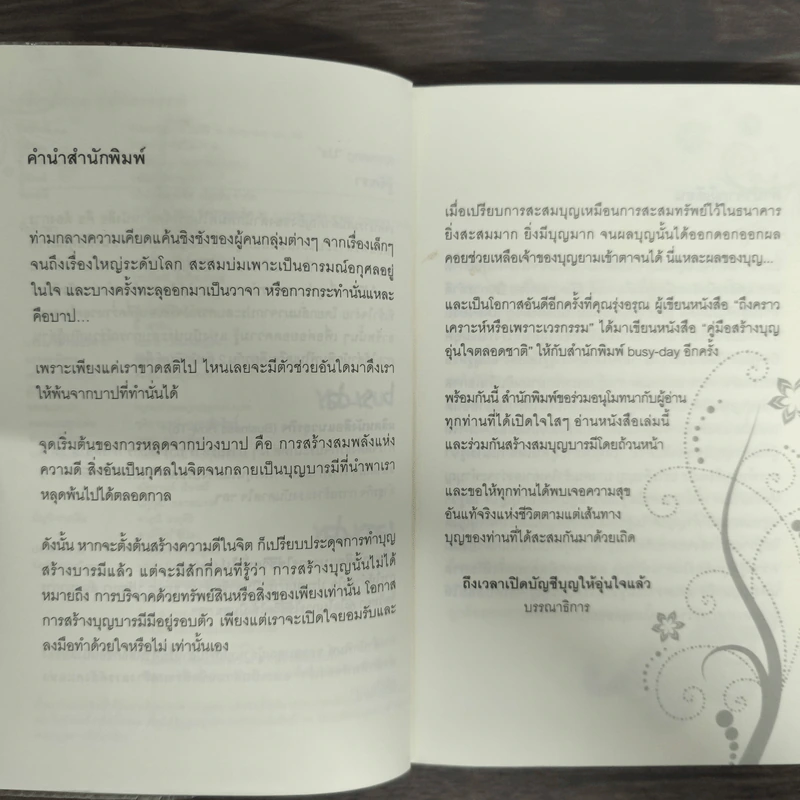 คำนำสำนักพิมพ์
ท่ามกลางความเคียดแค้นชิงชังของผู้คนกลุ่มต่างๆ จากเรื่องเล็กๆ
จนถึงเรื่องใหญ่ระดับโลก สะสมบ่มเพาะเป็นอารมณ์อกุศลอยู่
ในใจ และบางครั้งทะลุออกมาเป็นวาจา หรือการกระทำนั่นแหละ
คือบาป...
เพราะเพียงแค่เราขาดสติไป ไหนเลยจะมีตัวช่วยอันใดมาดึงเรา
ให้พ้นจากบาปที่ทำนั่นได้
จุดเริ่มต้นของการหลุดจากบ่วงบาป คือ การสร้างสมพลังแห่ง
ความดี สิ่งอันเป็นกุศลในจิตจนกลายเป็นบุญบารมีที่นำพาเรา
หลุดพ้นไปได้ตลอดกาล
ดังนั้น หากจะตั้งต้นสร้างความดีในจิต ก็เปรียบประดุจการทำบุญ
สร้างบารมีแล้ว แต่จะมีสักกี่คนที่รู้ว่า การสร้างบุญนั้นไม่ได้
หมายถึง การบริจาคด้วยทรัพย์สินหรือสิ่งของเพียงเท่านั้น โอกาส
การสร้างบุญบารมีมีอยู่รอบตัว เพียงแต่เราจะเปิดใจยอมรับและ
ลงมือทำด้วยใจหรือไม่ เท่านั้นเอง
เมื่อเปรียบการสะสมบุญเหมือนการสะสมทรัพย์ไว้ในธนาคาร
ยิ่งสะสมมาก ยิ่งมีบุญมาก จนผลบุญนั้นได้ออกดอกออกผล
คอยช่วยเหลือเจ้าของบุญยามเข้าตาจนได้ นี่แหละผลของบุญ...
และเป็นโอกาสอันดีอีกครั้งที่คุณรุ่งอรุณ ผู้เขียนหนังสือ "ถึงคราว
เคราะห์หรือเพราะเวรกรรม" ได้มาเขียนหนังสือ "คู่มือสร้างบุญ
อุ่นใจตลอดชาติ" ให้กับสำนักพิมพ์ busy-day อีกครั้ง
พร้อมกันนี้ สำนักพิมพ์ขอร่วมอนุโมทนากับผู้อ่าน
ทุกท่านที่ได้เปิดใจใสๆ อ่านหนังสือเล่มนี้
และร่วมกันสร้างสมบุญบารมีโดยถ้วนหน้า
และขอให้ทุกท่านได้พบเจอความสุข
อันแท้จริงแห่งชีวิตตามแต่เส้นทาง
บุญของท่านที่ได้สะสมกันมาด้วยเถิด
ถึงเวลาเปิดบัญชีบุญให้อุ่นใจแล้ว
บรรณาธิการ